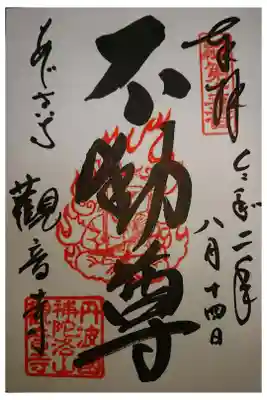 奉拝
令和二年
八月十四日
不動尊
あじさい
觀音寺
丹波國
補陀洛山
觀音寺